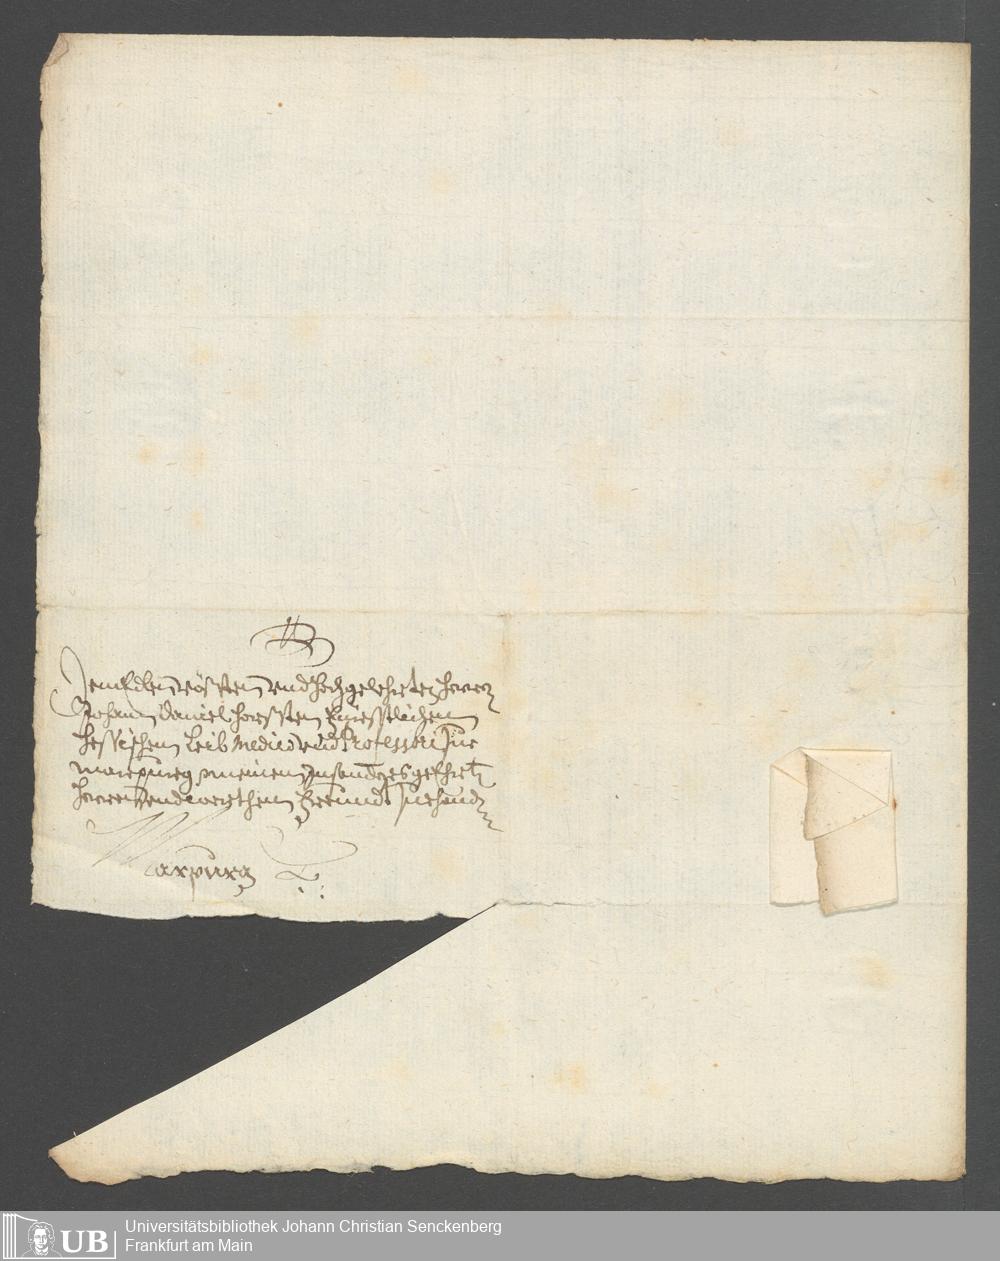 Dem Edlen vösten vnd hochgelehrten herrn
Johann Daniel horsten Fürstlichen
hessischen Leib Medico vnd Professori Zue
Marpurg meinem insonders geehrten
herren vnd werthen Freundt Zuehanden
Marpurg
Universitätsbibliothek Johann Christian Senckenberg
Frankfurt am Main
UB